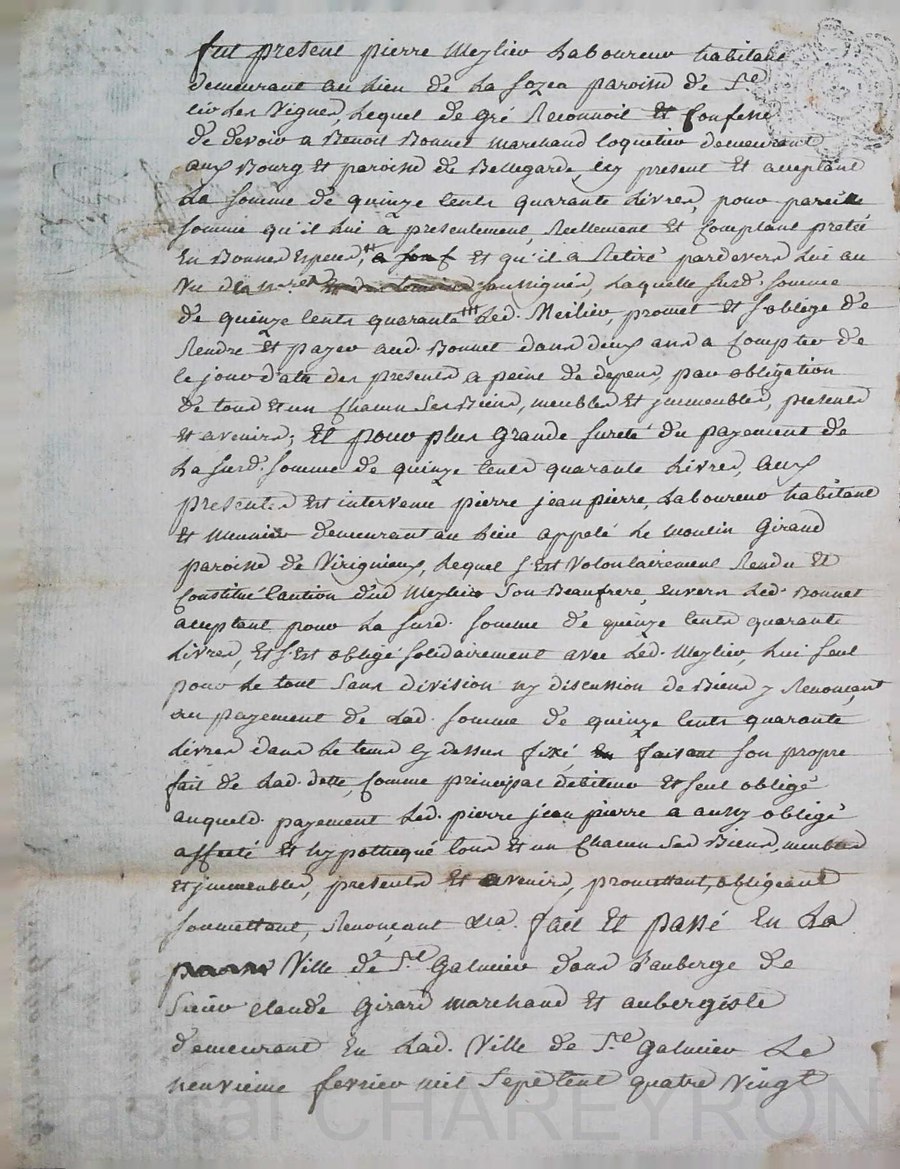 fut present pierre Meylieu Laboureur habitant
demeurant au lieu de La foza paroisse de St
Cir Les Vignes, Lequel de gré Reconnoit et Confesse
de devoir a Benoit Bonnet marchand Coquetier demeurant
aux Bourg et paroisse de Bellegarde, Cy present et acceptant
La somme de quinze Cents quarante Livres, pour pareille
somme qu'il Lui à presentement, Reellement et Comptant pretée
En Bonnes Especes, et qu'il a Retiré pardevers Lui au
Vu de nore soussignés, Laquelle susd. somme
de quinze Cents quarante Led. Meilieu, promet et s'oblige de
Rendre et payer aud. Bonnet dans deux ans a Compter de
ce jour d'ate des presentes a peine de depens, par obligation
de tous et un Chacun Ses Biens, meubles et jmmeubles, presents
et avenirs; Et pour plus Grande sureté du payement de
La susd. somme de quinze Cents quarante Livres, aux
presentes est intervenu pierre jean pierre, Laboureur habitant
et Meunier demeurant au Lieu appelé Le moulin Giraud
paroisse de Virignieux, Lequel s'est Volontairement Rendu et
Constitué Caution dud Meylieu Son Beaufrere, Envers Led. Bonnet
acceptant pour La susd. somme de quinze Cents quarante
Livres, et s'est obligé solidairement avec Led. Meylieu, Lui seul
pour Le tout Sans division ny discussion de Biens y Renonçant
au payement de Lad. somme de quinze Cents quarante
Livres dans Le tems Cy dessus fixé, faisant son propre
fait de Lad. dette, Comme principal debiteur et seul obligé
auqueld. payement Led. pierre jean pierre a aussy obligé
affecté et hypothequé tous et un Chacun Ses Biens, meubles
et jmmeubles, presents et avenirs, promettant, obligeant
soumettant, Renonçant &a. fait et passé En La
Ville de St. Galmier dans L'auberge de
Sieur Claude Girard marchand et aubergiste
demeurant En Lad. Ville de St. Galmier Le
neuvieme fevrier mil Sept Cent quatre Vingt
ascal CHAREYRON